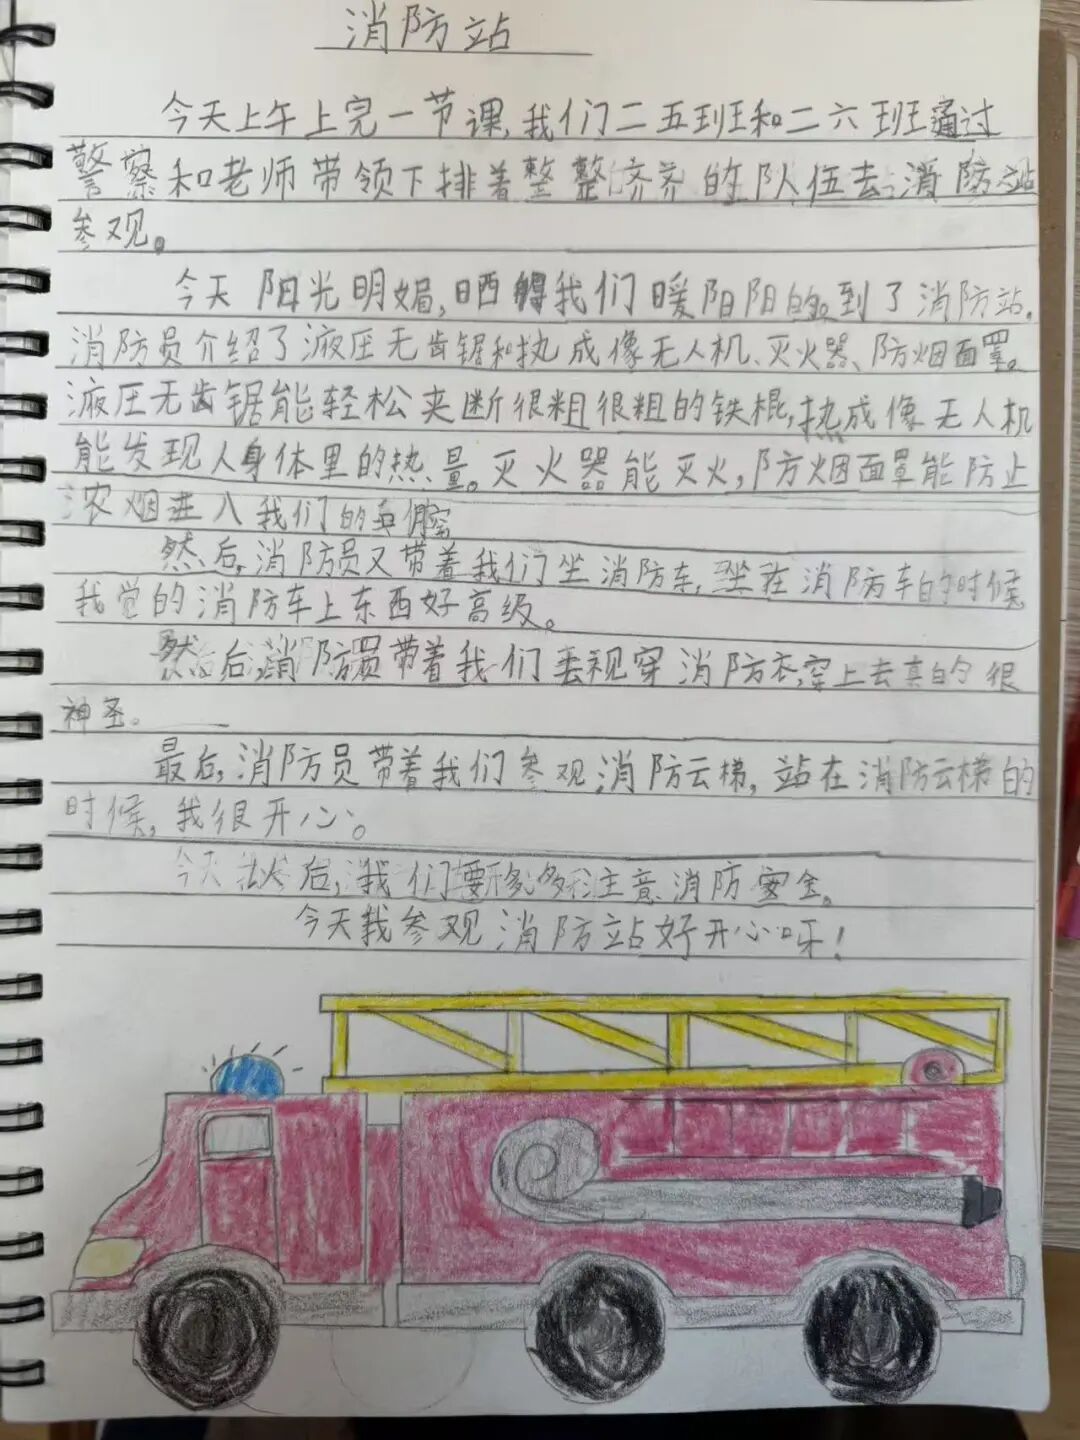 消防站
今天上午上完一节课,我们二五班和二六班通过
警察和老师带领下排着整整济齐的队伍去消防站
参观。
今天阳光明媚,晒得我们暖阳阳的。到了消防站,
消防员介绍了液压无齿锯和热成像无人机、灭火器、防烟面罩。
液压无齿锯能轻松夹断很粗很粗的铁棍,热成像无人机
能发现人身体里的热量。灭火器能灭火,防烟面罩能防止
浓烟进入我们的
然后,消防员又带着我们坐消防车,坐在消防车的时候
我觉的消防车上东西好高级。
然后,消防员带着我们去视穿消防衣,穿上去真的很
神圣。
最后,消防员带着我们参观消防云梯,站在消防云梯的
时候,我很开心。
今天以后,我们要多多注意消防安全。
今天我参观消防站好开心呀!